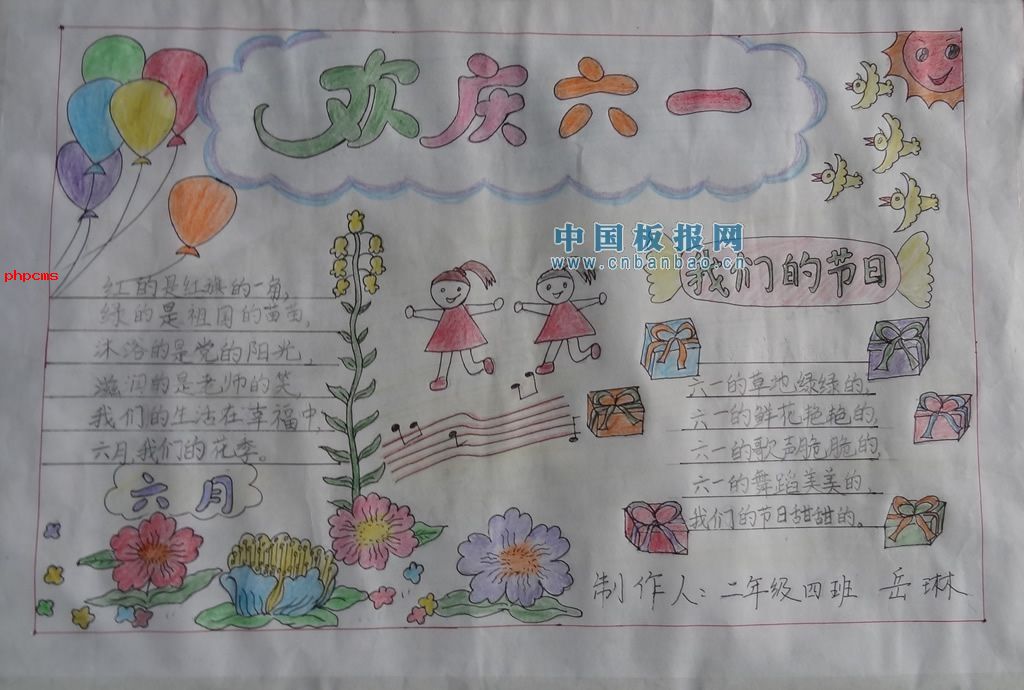 欢庆六一
中国板报网
www.cnbanbao.cn
phpcms
红的是红旗的一角,
绿的是祖国的苗苗,
沐浴的是党的阳光,
滋润的是老师的笑,
我们的生活在幸福中,
六月,我们的花季。
六月
我们的节日
六一的草地,绿绿的,
六一的鲜花艳艳的,
六一的歌声脆脆的,
六一的舞蹈美美的,
我们的节日甜甜的。
制作人:二年级四班 岳琳